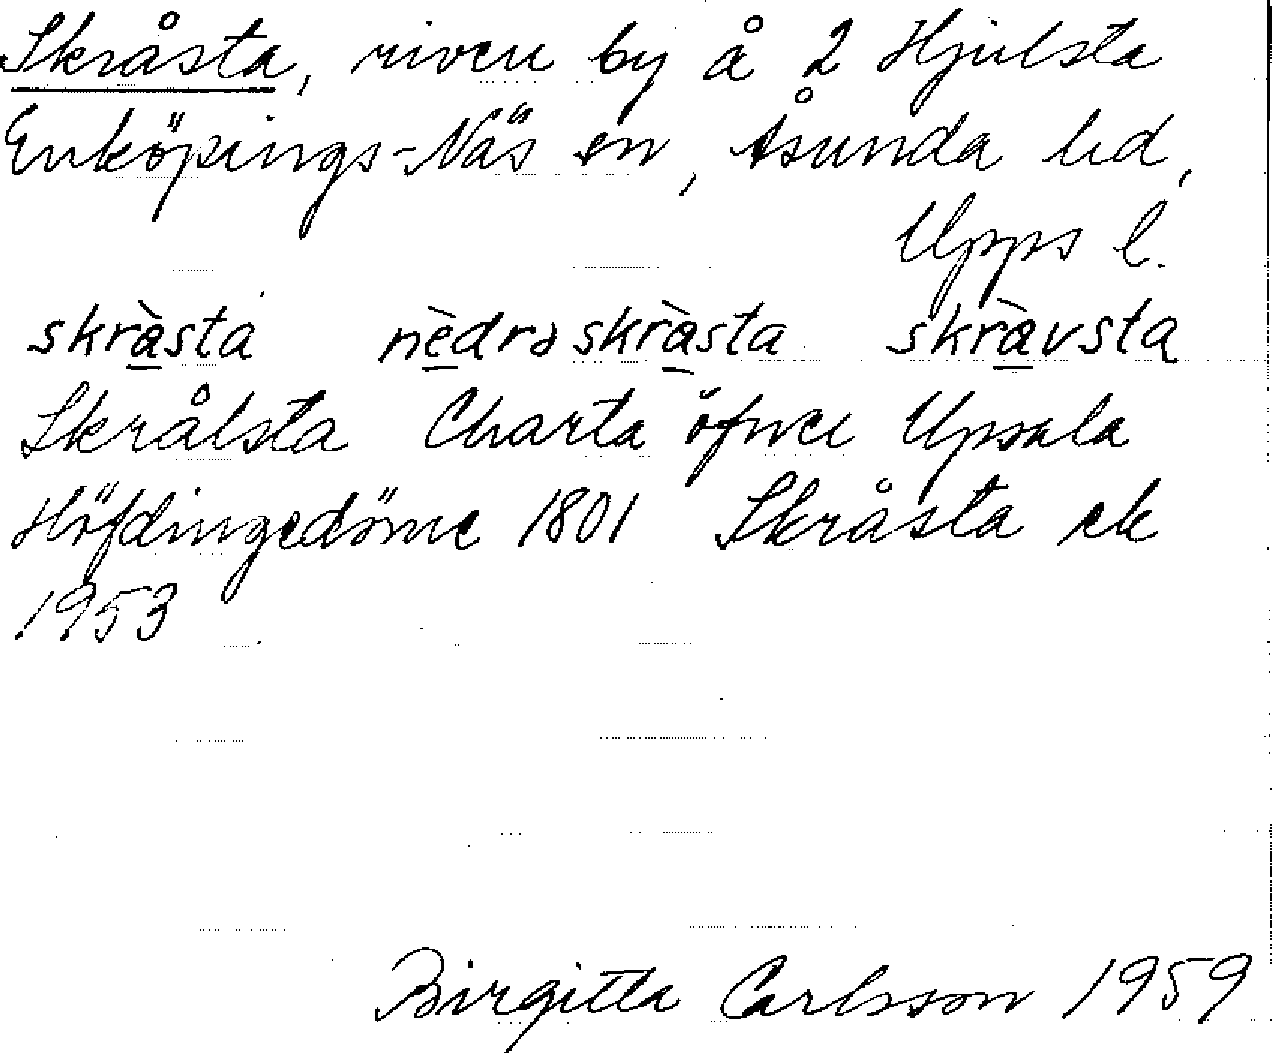 Skråsta, riven by å 2 Hjulsta
Enköpings-Näs sn, Åsunda hd,
Upps l.
skrà̱sta nè̱drəskrà̱sta skrà̱vsta
Skrålsta Charta öfver Upsala
Höfdingedöme 1801 Skråsta ek
1953
Birgitta Carlsson 1959